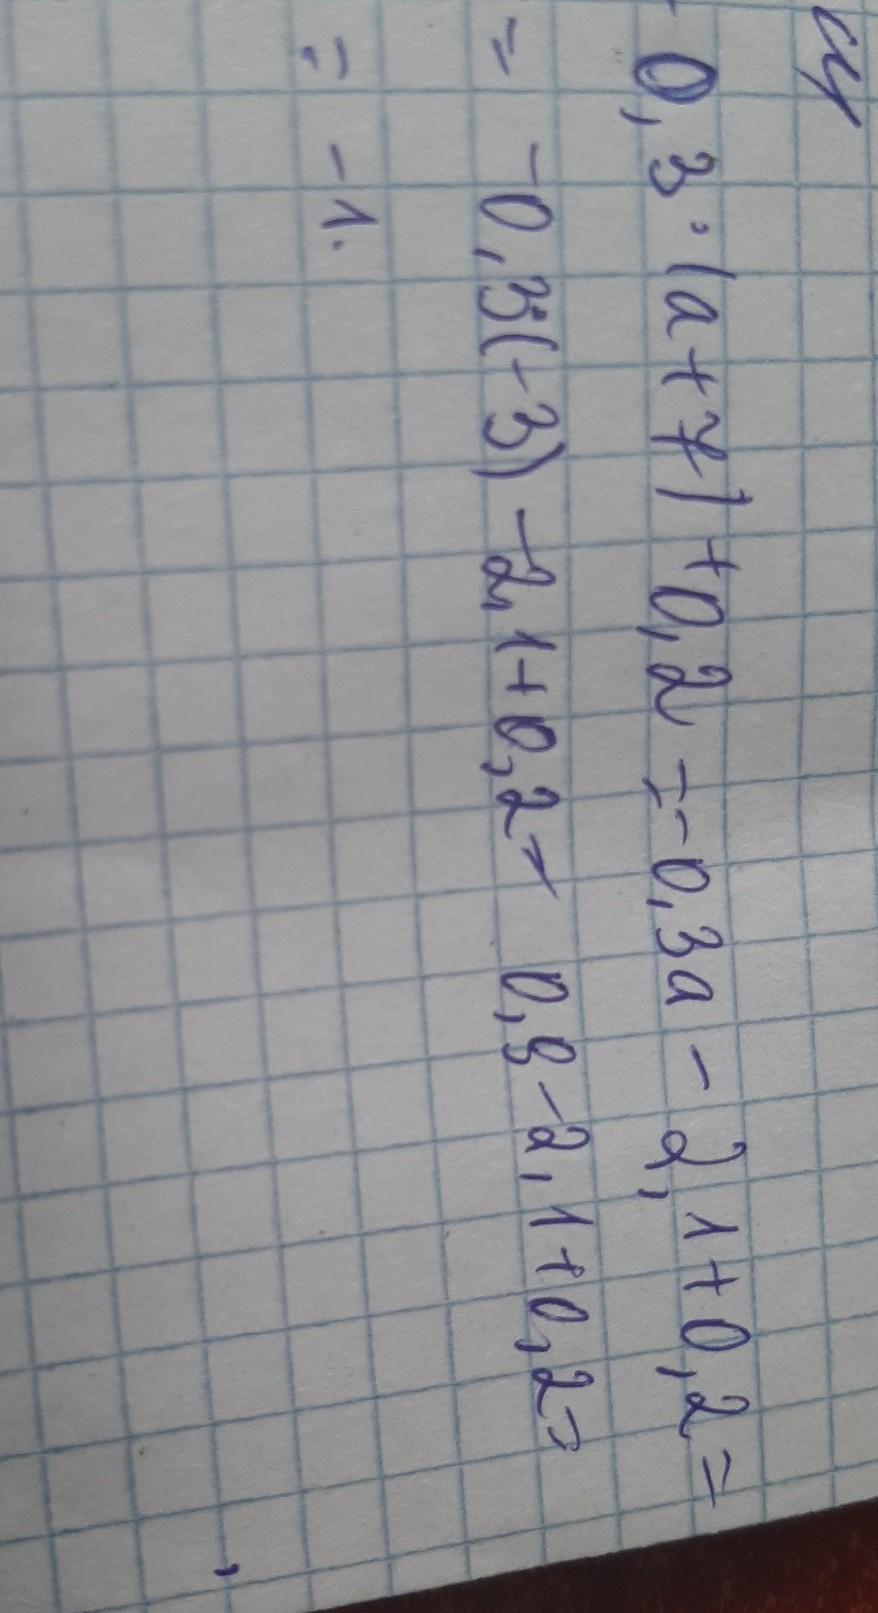 - 0,3 · (a + 7) + 0,2 = - 0,3a - 2,1 + 0,2 =
= -0,3·(-3) - 2,1 + 0,2 = 0,9 - 2,1 + 0,2 =
= -1.